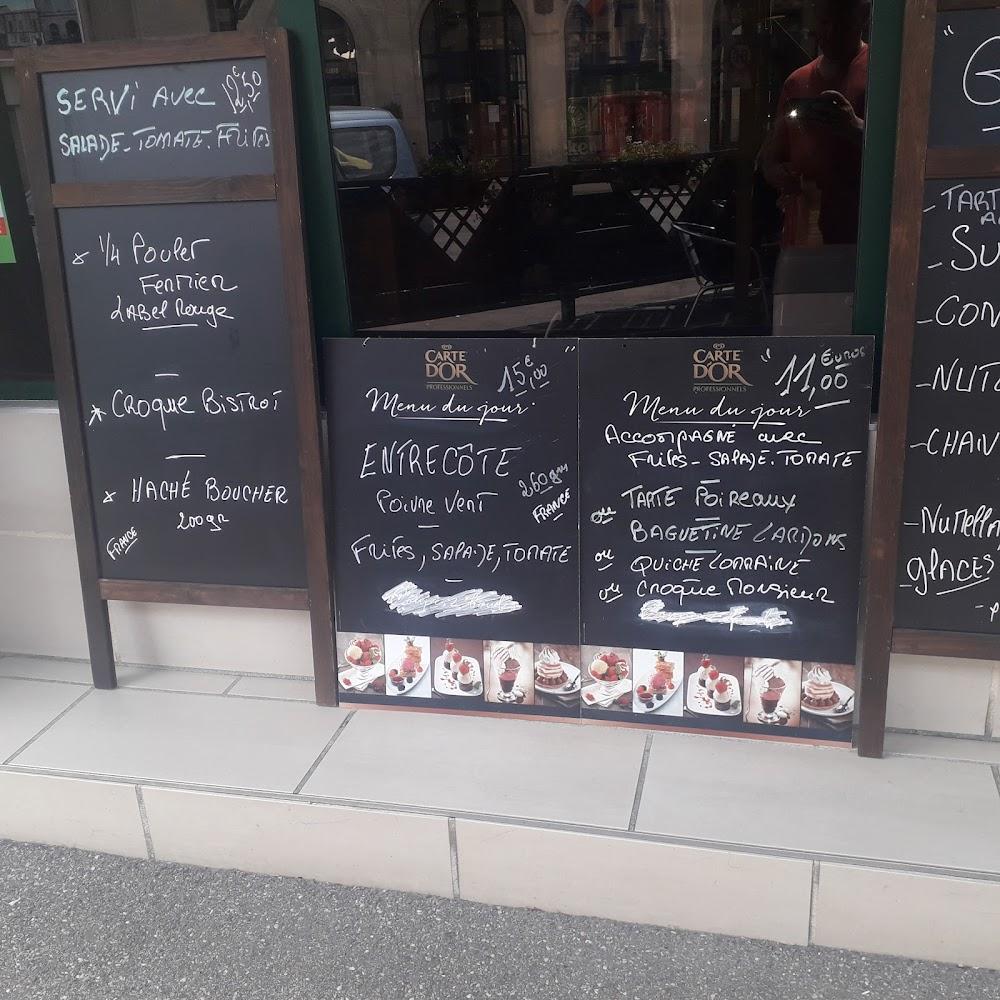 SERVI AVEC 12€,50
SALADE-TOMATE.FRITES
1/4 POULET
FERMIER
LABEL ROUGE
CROQUE BISTROT
HACHÉ BOUCHER
200gr
FRANCE
CARTE
D'OR
PROFESSIONNELS
15€,00
Menu du jour
ENTRECÔTE
POIVRE VERT
260grs
FRANCE
FRITES, SALADE, TOMATE
CARTE
D'OR
PROFESSIONNELS
11,00 Euros
Menu du jour
ACCOMPAGNE avec
FRITES-SALADE.TOMATE
TARTE POIREAUX
ou BAGUETTINE LARDONS
ou QUICHE LORRAINE
ou CROQUE MONSIEUR
" G
- TART
- SU
- CON
- NUT
- CHAN
- NUTELLA
- GLACES